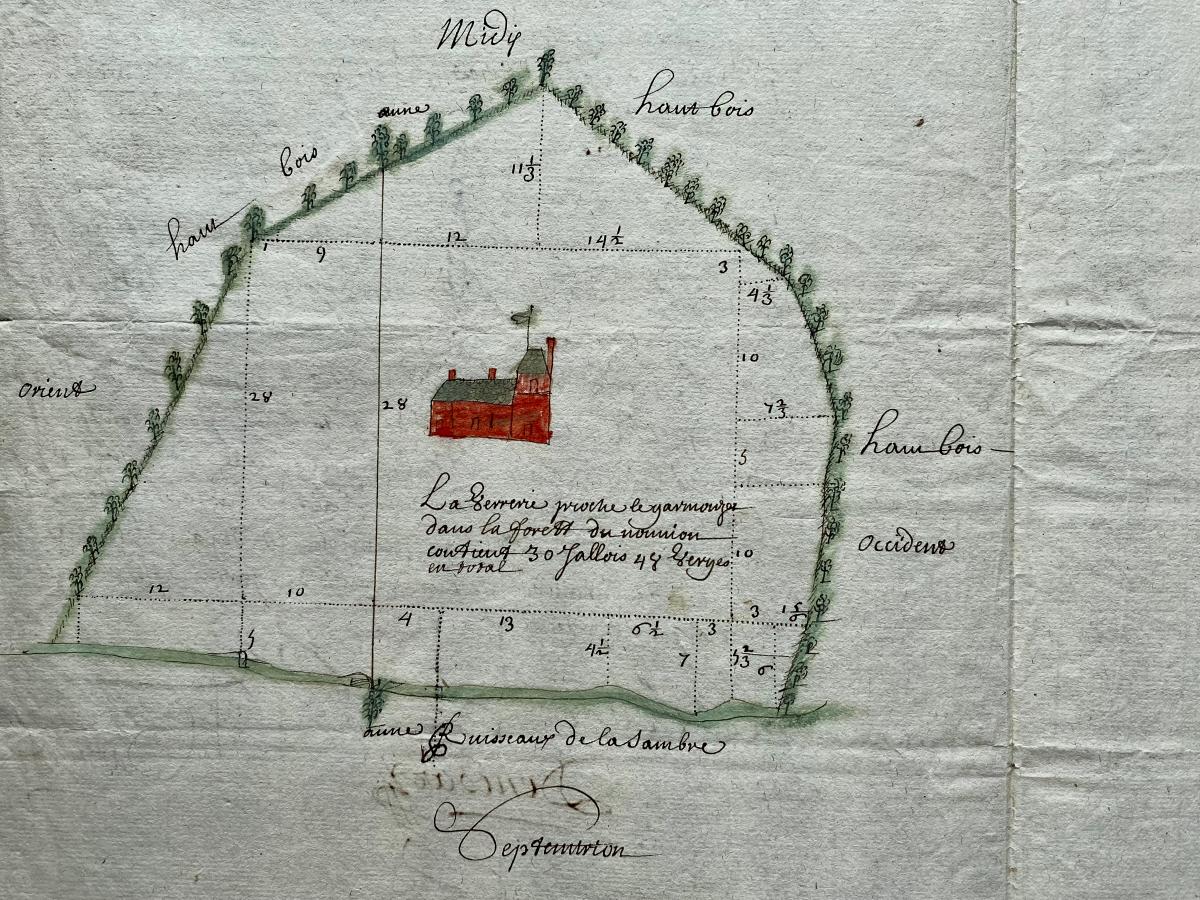 Midy
aune
haut bois
haut bois
11 1/3
9
12
14 1/2
3
4 1/3
10
orient
28
28
7 2/3
haut bois
5
La Verrerie proche le garmouzet
dans la forest du nouuion
contient 30 Jallois 48 Verges
en total
10
occident
12
10
4
13
6 1/2
3
3
1 5/6
5
4 1/2
7
5 2/3
6
aune
Ruisseaux de la Sambre
Septentrion